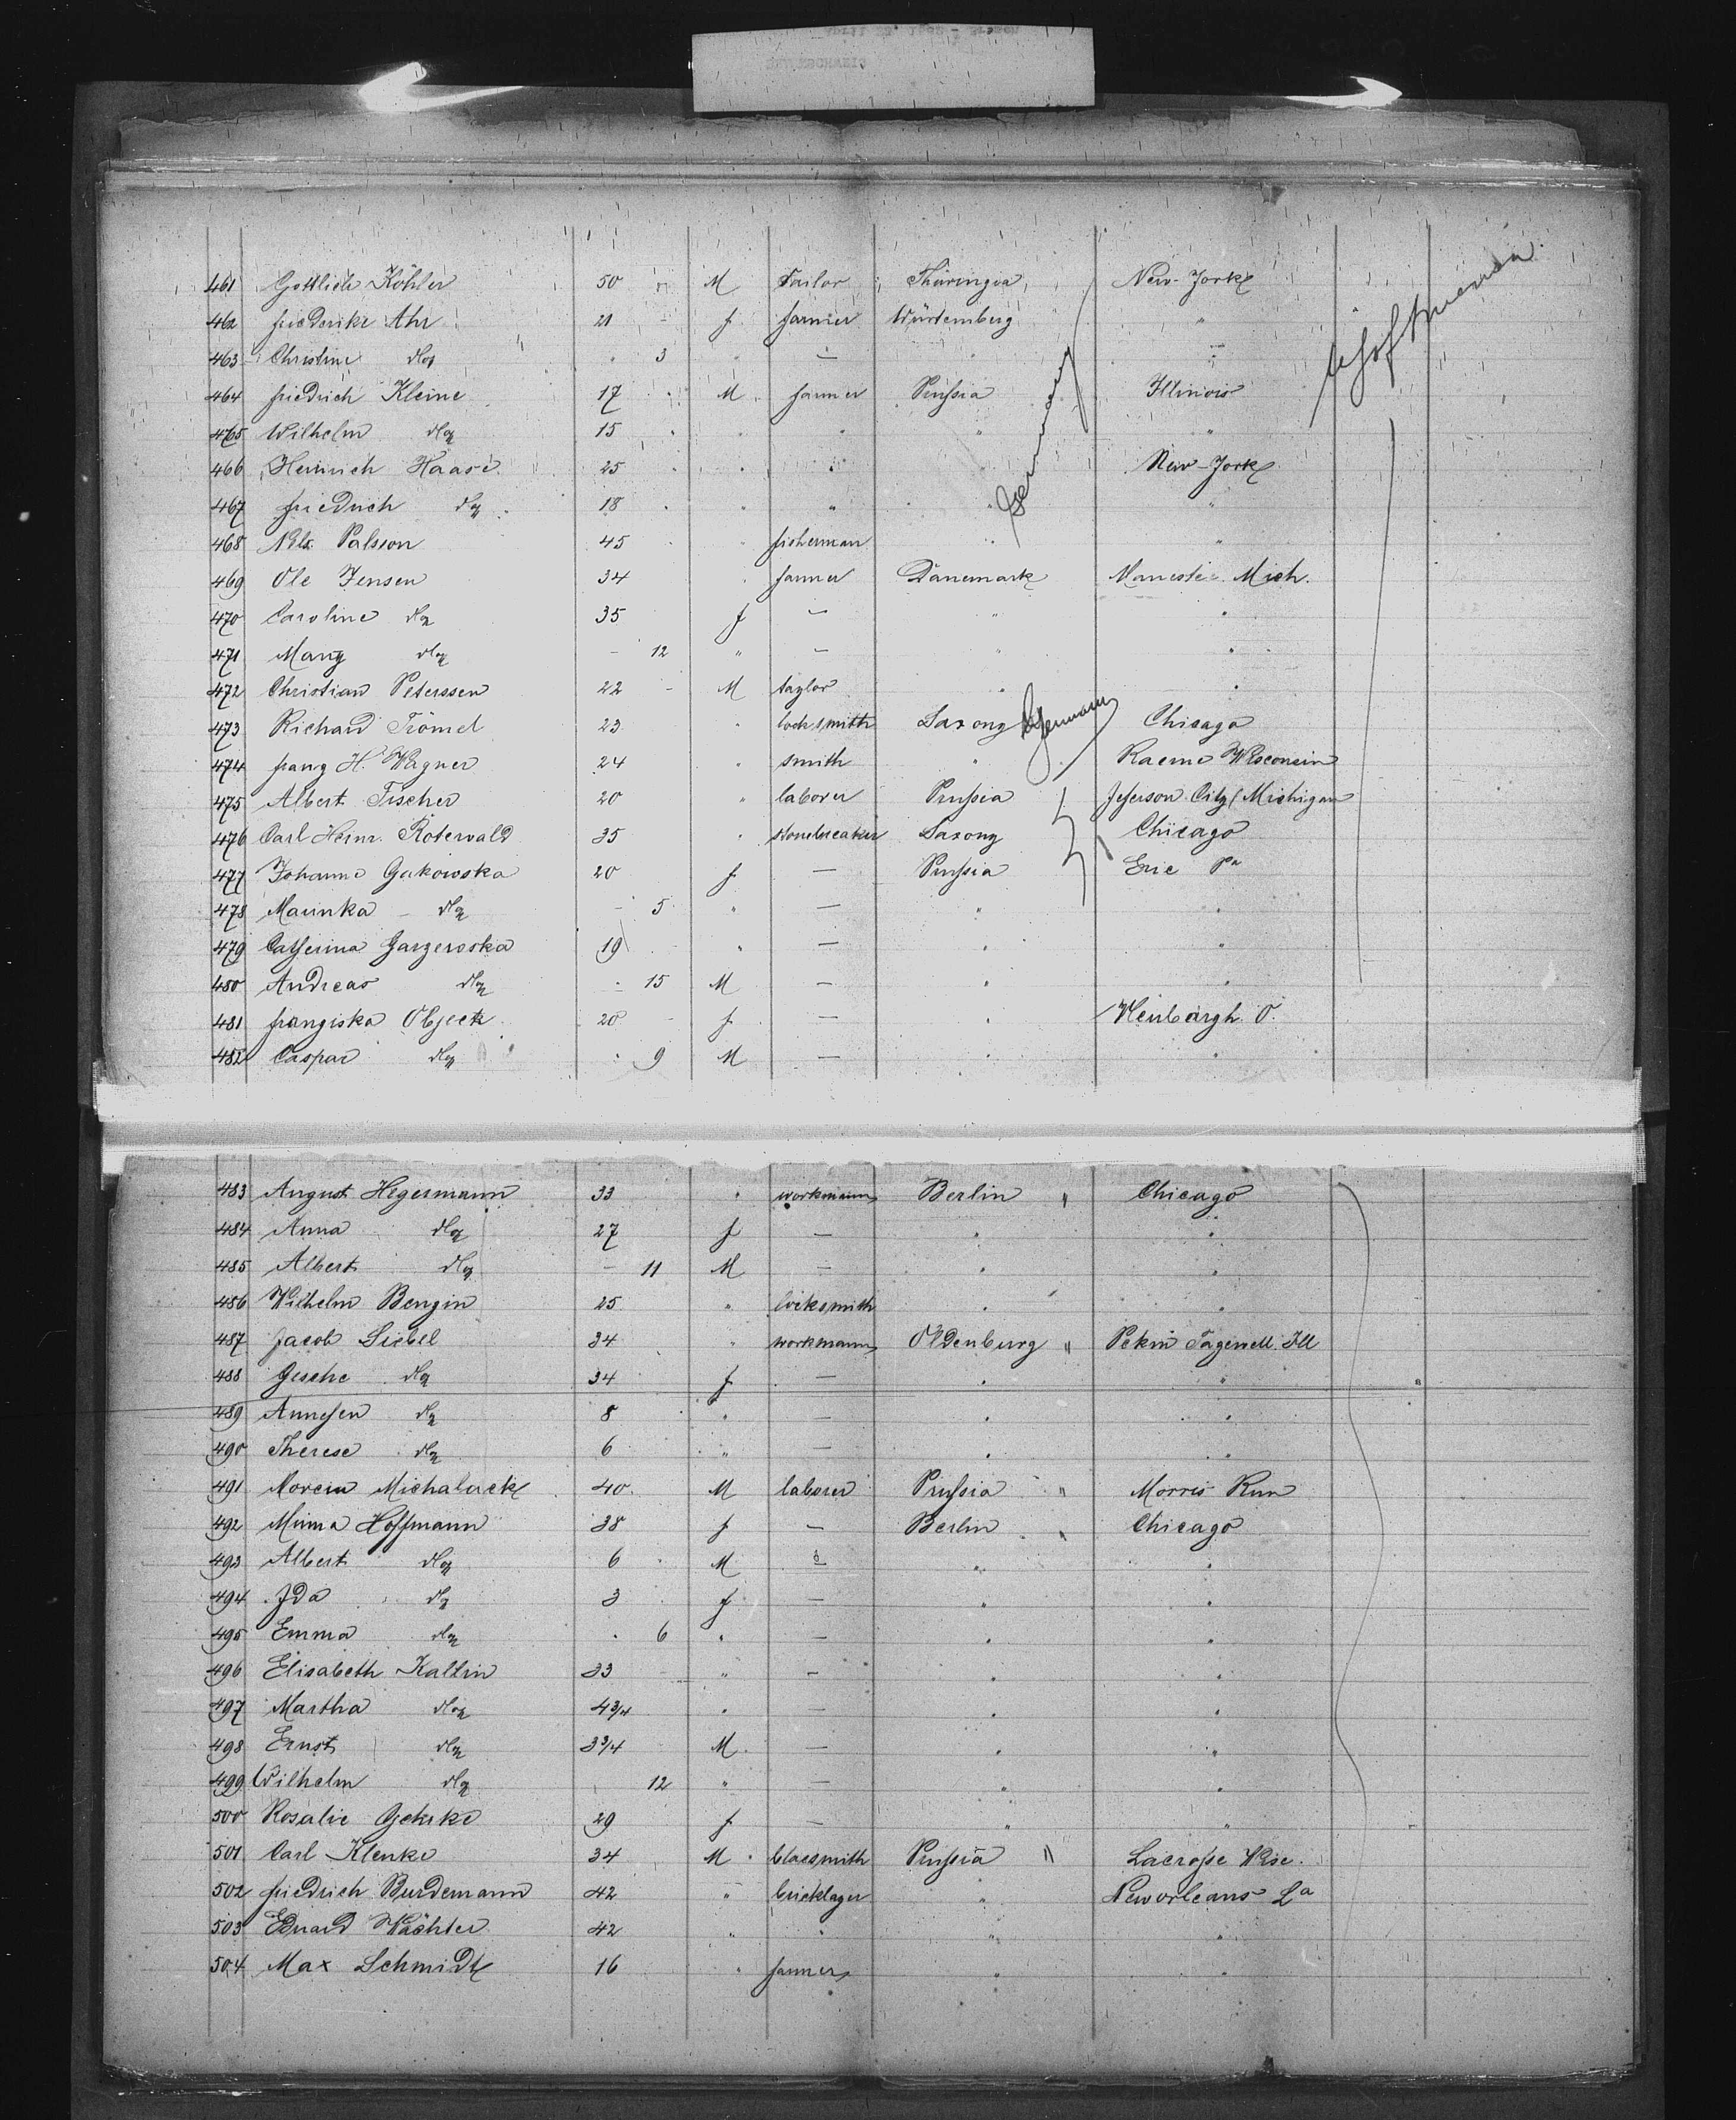 461 Gottlieb Köhler 50 - M Tailor Thüringia New-York
462 Friederike Ahr 21 - f farmer Würtemberg "
463 Christine do " 3 " — " "
464 Friedrich Kleine 17 " M farmer Prussia Illinois
465 Wilhelm do 15 " " " " "
466 Heinrich Haase 25 " " " " New-York
467 Friedrich do 18 " " " " "
468 Nels Palsson 45 " fisherman " "
469 Ole Jensen 34 " farmer Dänemark Manistee Mich.
470 Caroline do 35 f — " "
471 Mary do - 12 " — " "
472 Christian Peterssen 22 - M taylor " "
473 Richard Trömel 23 " locksmith Saxony Germany Chicago
474 Franz H. Wagner 24 " smith " Racine Wisconsin
475 Albert Fischer 20 " laborer Prussia Jefferson City Michigan
476 Carl Heinr. Röterwald 35 " stonebreaker Saxony Chicago
477 Johanne Gakowska 20 f — Prussia Erie Pa
478 Marinka do - 5 " — " "
479 Catherina Gargeroska 19 " — " "
480 Andreas do - 15 M — " "
481 Franziska Objeck 20 - f — "
482 Caspar do " 9 M — " "
Germany
483 August Hegermann 33 " workmann Berlin " Chicago
484 Anna do 27 f — " "
485 Albert do - 11 M — " "
486 Wilhelm Bengin 25 " locksmith " "
487 Jacob Siebel 34 " workmann Oldenburg " Pekin Tagewell Ill
488 Gesche do 34 f — " "
489 Annesen do 8 " — " "
490 Therese do 6 " — " "
491 Morcin Michalack 40 M laborer Prussia " Morris Run
492 Minna Hoffmann 38 f — Berlin " Chicago
493 Albert do 6 M — " "
494 Ida do 3 f — " "
495 Emma do " 6 " — " "
496 Elisabeth Kallin 33 " — " "
497 Martha do 4 3/4 " — " "
498 Ernst do 3 3/4 M — " "
499 Wilhelm do 12 " — " "
500 Rosalie Gehrke 29 f — " "
501 Carl Klenke 34 M blacsmith Prussia " Lacrosse Wisc.
502 Friedrich Burdemann 42 " bricklayer " Neworleans La
503 Eduard Wächter 42 " " " "
504 Max Schmidt 16 " farmer " "